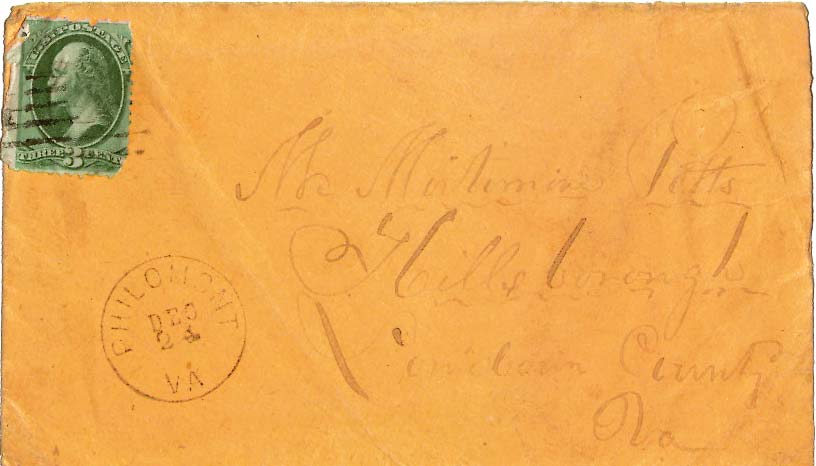 U.S. POSTAGE
THREE 3 CENTS
Mr Mortimore Potts
Hillsborough
Loudoun County
Va
PHILOMONT
DEC
24
VA